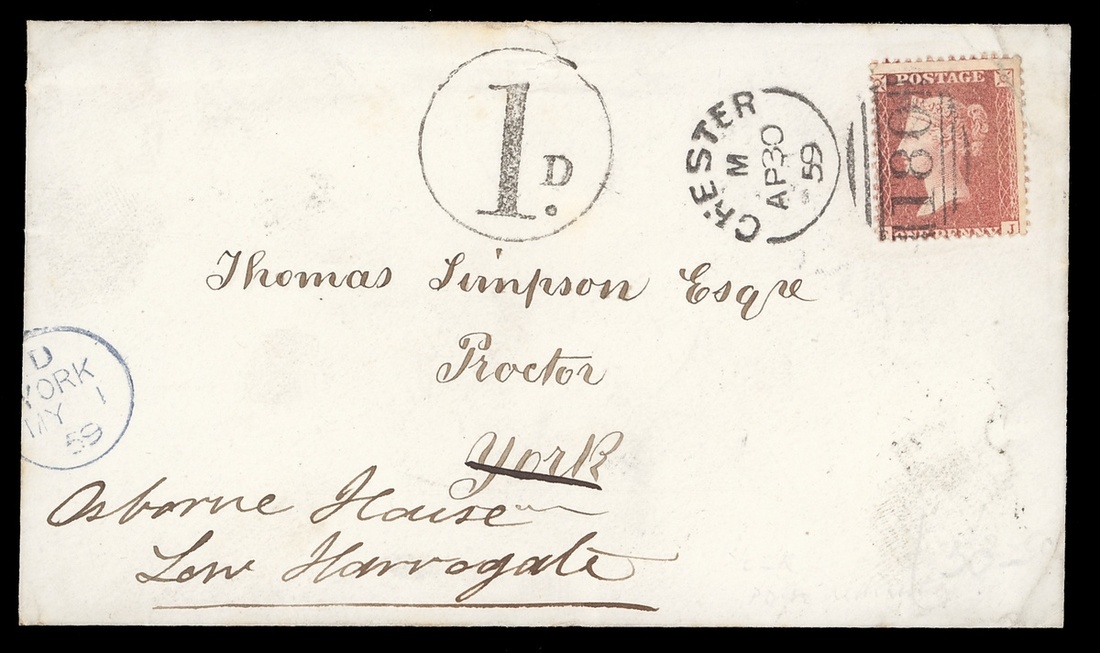 1D.
CHESTER
M
AP30
59
180
POSTAGE
ONE PENNY
J
Thomas Simpson Esqre
Proctor
York
D
YORK
MY 1
59
Osborne House
Low Harrogate